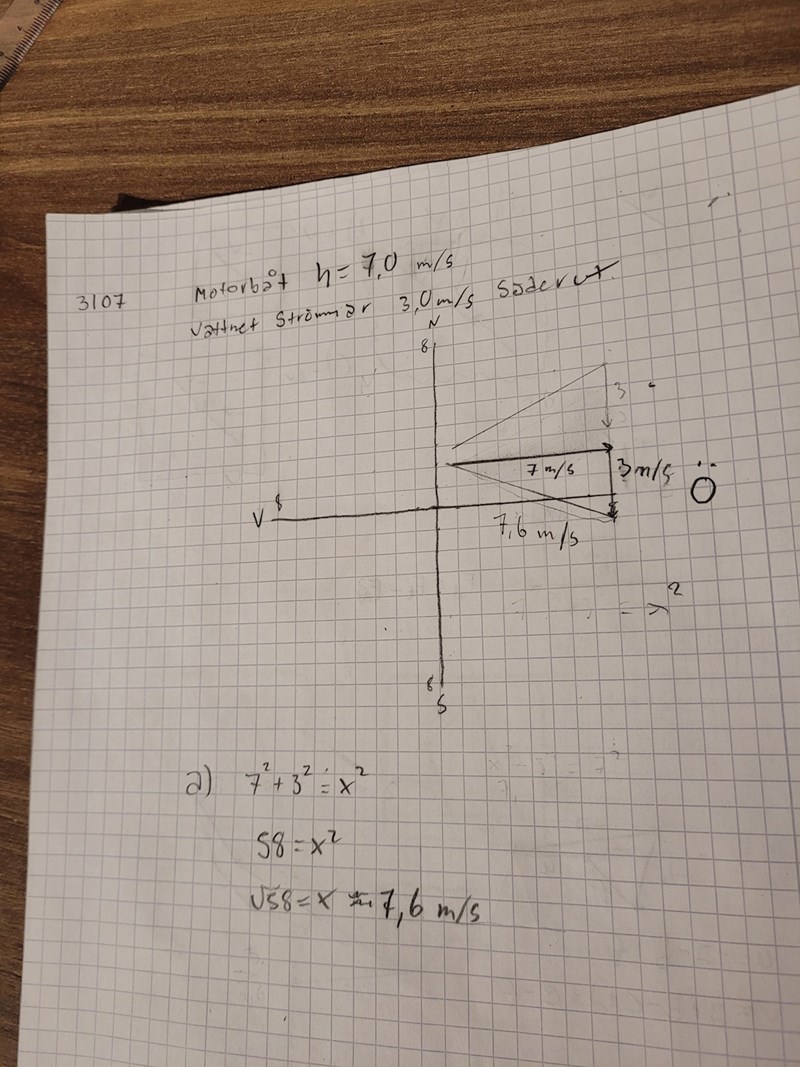 3107 Motorbåt h = 7,0 m/s
Vattnet Strömmar 3,0 m/s Söderut
N
8
3
7 m/s
3 m/s
Ö
V 8
7,6 m/s
= x²
8
S
a) 7² + 3² = x²
58 = x²
√58 = x ≈ 7,6 m/s